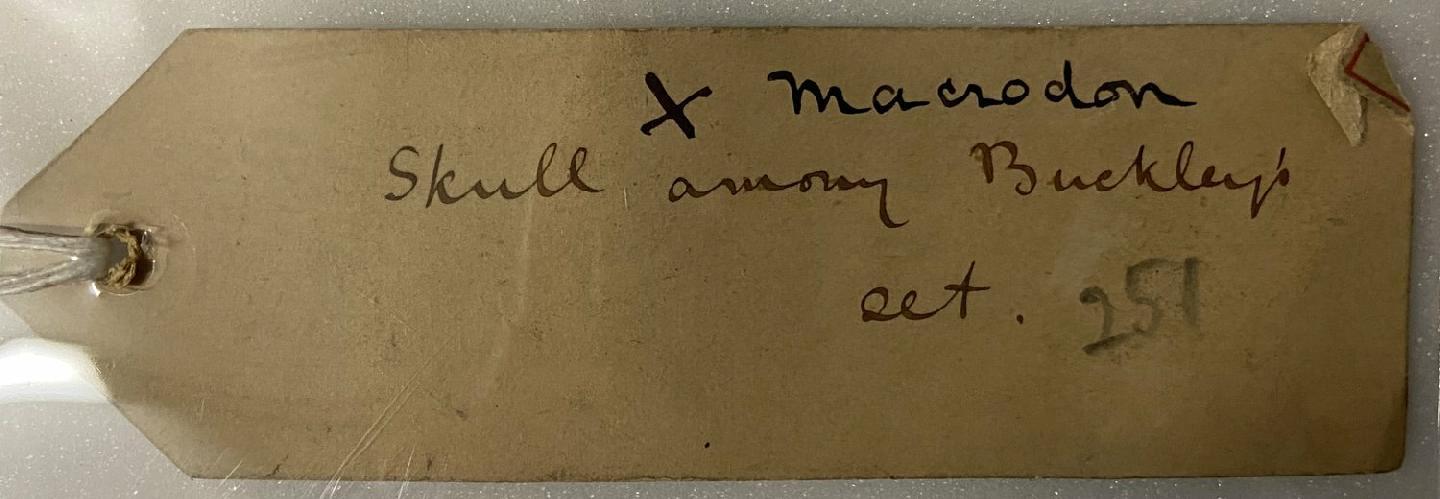 X Macrodon
Skull among Buckley's
set. 251